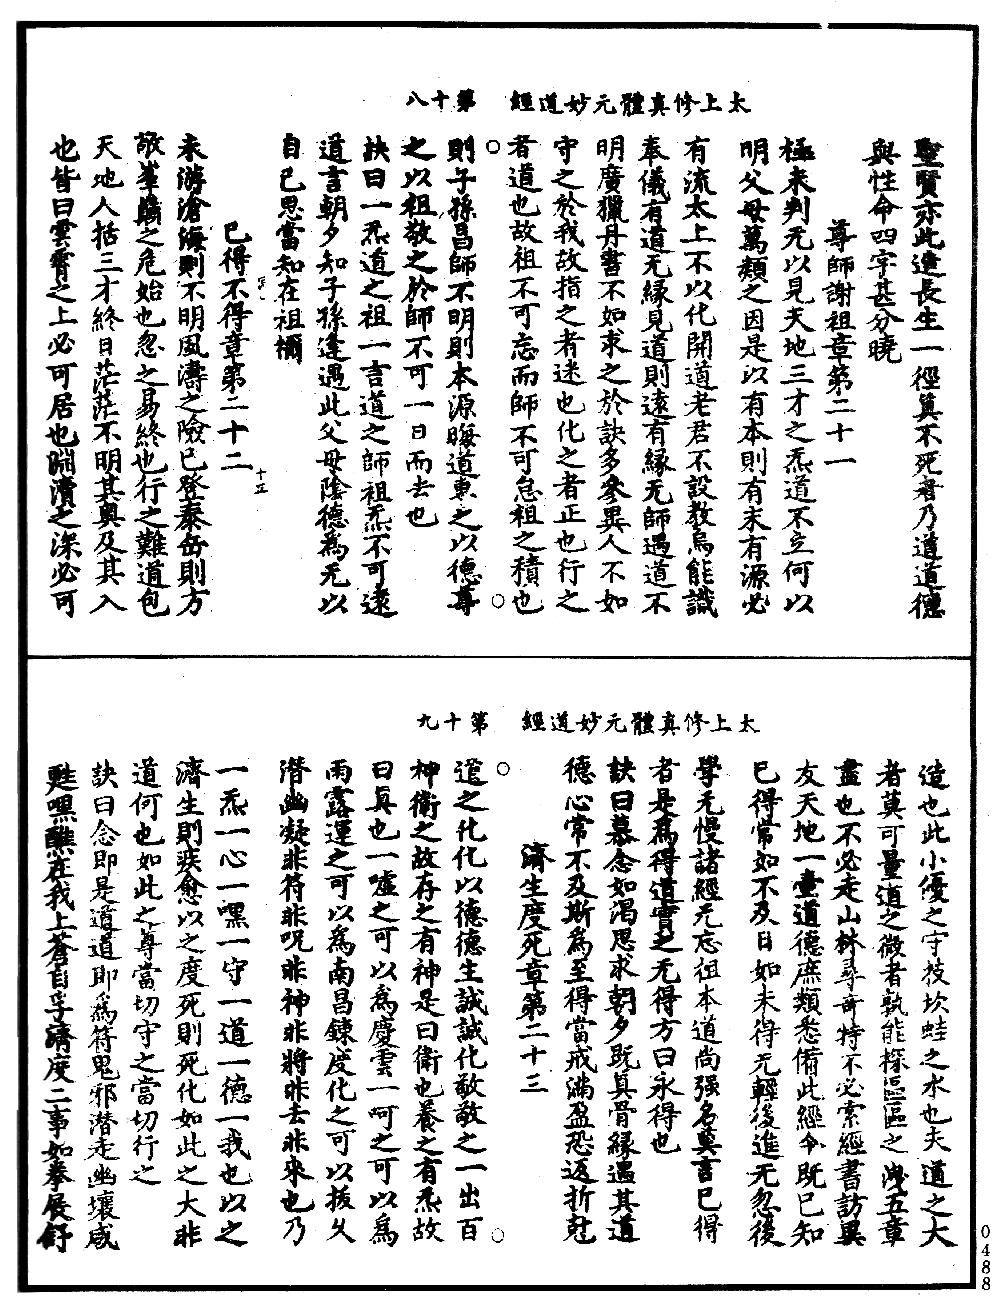 太上修真體元妙道經　第十八
聖賢亦此達長生一徑莫不死者乃道道德
與性命四字甚分曉
尊師謝祖章第二十一
極未判无以見天地三才之炁道不立何以
明父母萬類之因是以有本則有末有源必
有流太上不以化開道老君不設教烏能識
奉儀有道无緣見道則遠有緣无師遇道不
明廣獵丹書不如求之於訣多參異人不如
守之於我故指之者迷也化之者正也行之
者道也故祖不可忘而師不可怠祖之積也
則子孫昌師不明則本源晦道東之以德尊
之以祖敬之於師不可一日而去也
訣曰一炁道之祖一言道之師祖炁不可遠
道言朝夕知子孫逢遇此父母陰德爲无以
自己思當知在祖禰
已得不得章第二十二
十五
未游滄海則不明風濤之險已登泰岳則方
敬峯巒之危始也忽之易終也行之難道包
天地人括三才終日茫茫不明其奧及其入
也皆曰雲霄之上必可居也淵瀆之深必可
太上修真體元妙道經　第十九
造也此小優之守枝坎蛙之水也夫道之大
者莫可量道之微者孰能探區區之洩五章
盡也不必走山林尋奇特不必索經書訪異
友天地一壷道德庶類悉備此經今既已知
已得常如不及日如未得无輕後進无忽後
學无慢諸經无忘祖本道尚强名莫言已得
者是爲得道實之无得方曰永得也
訣曰慕念如渴思求朝夕既真骨緣遇其道
德心常不及斯爲至得當戒滿盈恐返折尅
濟生度死章第二十三
道之化化以德德生誠誠化敬敬之一出百
神衛之故存之有神是曰衛也養之有炁故
曰真也一噓之可以爲慶雲一呵之可以爲
雨露運之可以爲南昌鍊度化之可以拔乆
滯幽凝非符非呪非神非將非去非來也乃
一炁一心一嘿一守一道一德一我也以之
濟生則疾愈以之度死則死化如此之大非
道何也如此之尊當切守之當切行之
訣曰念即是道道即爲符鬼邪潜走幽壤咸
甦嘿醮在我上蒼自孚濟度二事如拳展舒
0488